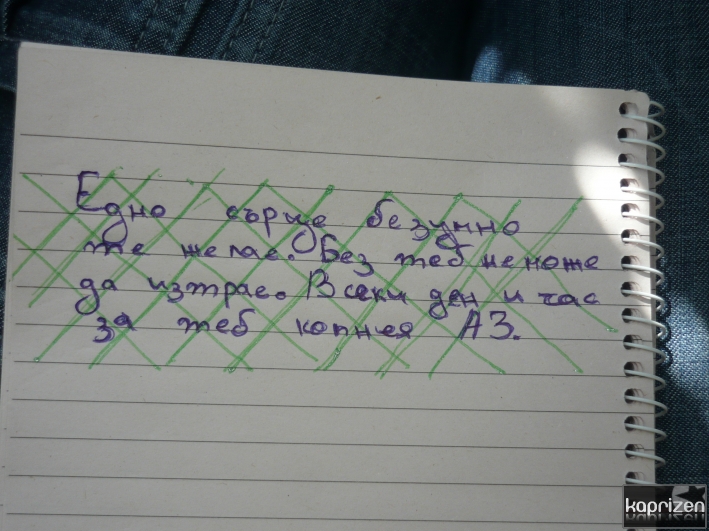 Едно сърце безумно
те желае. Без теб неможе
да изтрае. Всеки ден и час
за теб копнея АЗ.
kaprizen